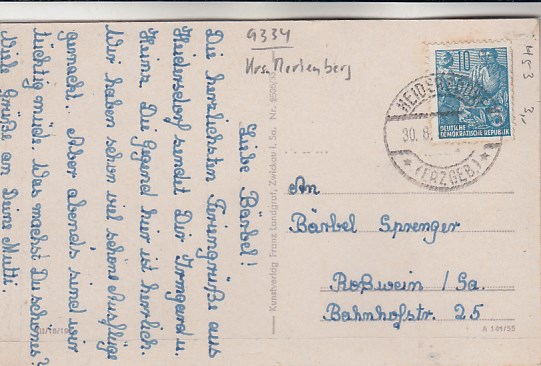 9334
Krs. Marienberg
453
3,-
Liebe Bärbel!
Die herzlichsten Feriengrüße aus
Heidersdorf sendet Dir Irmgard u.
Heinz. Die Gegend hier ist herrlich.
Wir haben schon viel schöne Ausflüge
gemacht. Aber abends sind wir
tüchtig müde. Was machst Du schönes?
Viele Grüße an Deine Mutti.
Kunstverlag Franz Landgraf, Zwickau i. Sa. Nr.
10
DEUTSCHE
DEMOKRATISCHE REPUBLIK
HEIDERSDORF
30.8.
(ERZGEB.)
An
Bärbel Sprenger
Roßwein / Sa.
Bahnhofstr. 25
A 141/55